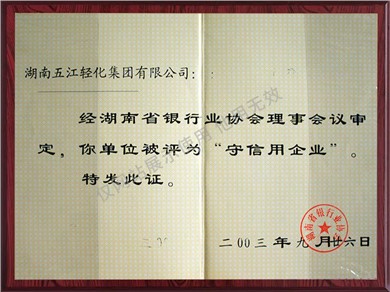 湖南五江轻化集团有限公司：
经湖南省银行业协会理事会议审
定，你单位被评为“守信用企业”。
特发此证。
二00三年九月廿六日
湖南省银行业协会
仅限站展示使用 他用无效